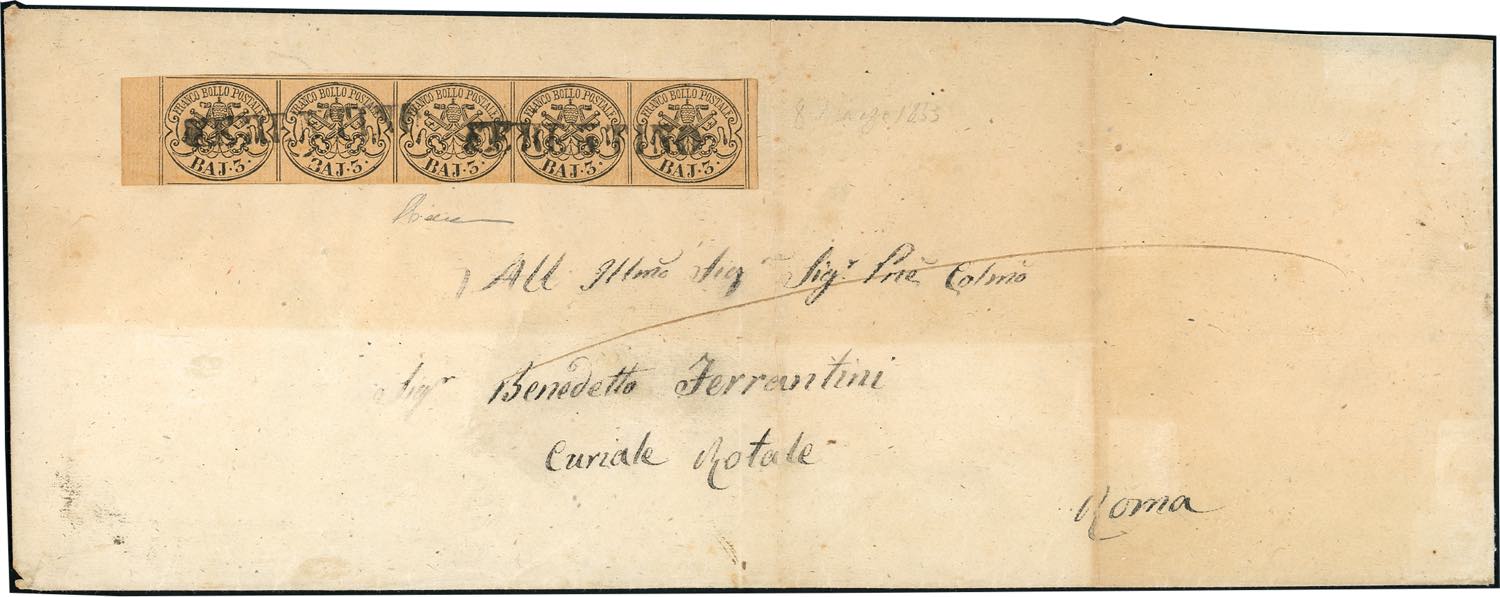 FRANCO BOLLO POSTALE FRANCO BOLLO POSTALE FRANCO BOLLO POSTALE FRANCO BOLLO POSTALE FRANCO BOLLO POSTALE
BAJ·3· BAJ·3· BAJ·3· BAJ·3· BAJ·3·
8 1853
All Illmo Sig Sigr Pñe Colmo
Sigr Benedetto Ferrantini
Curiale Rotale
Roma